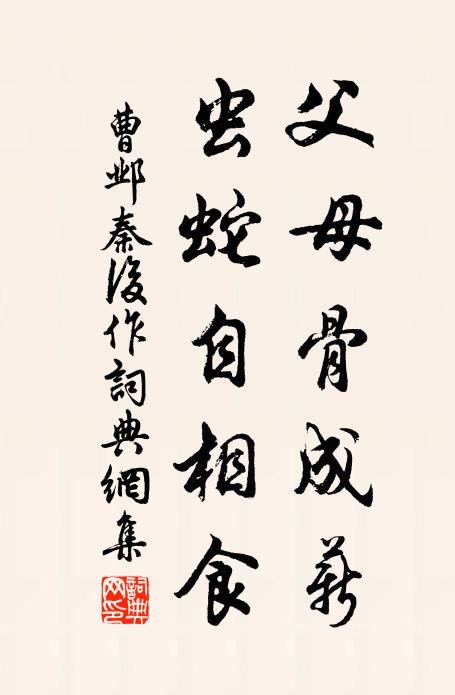 父母骨成薪
虫蛇自相食
曹邺秦後作詞典網集
詞典
网印